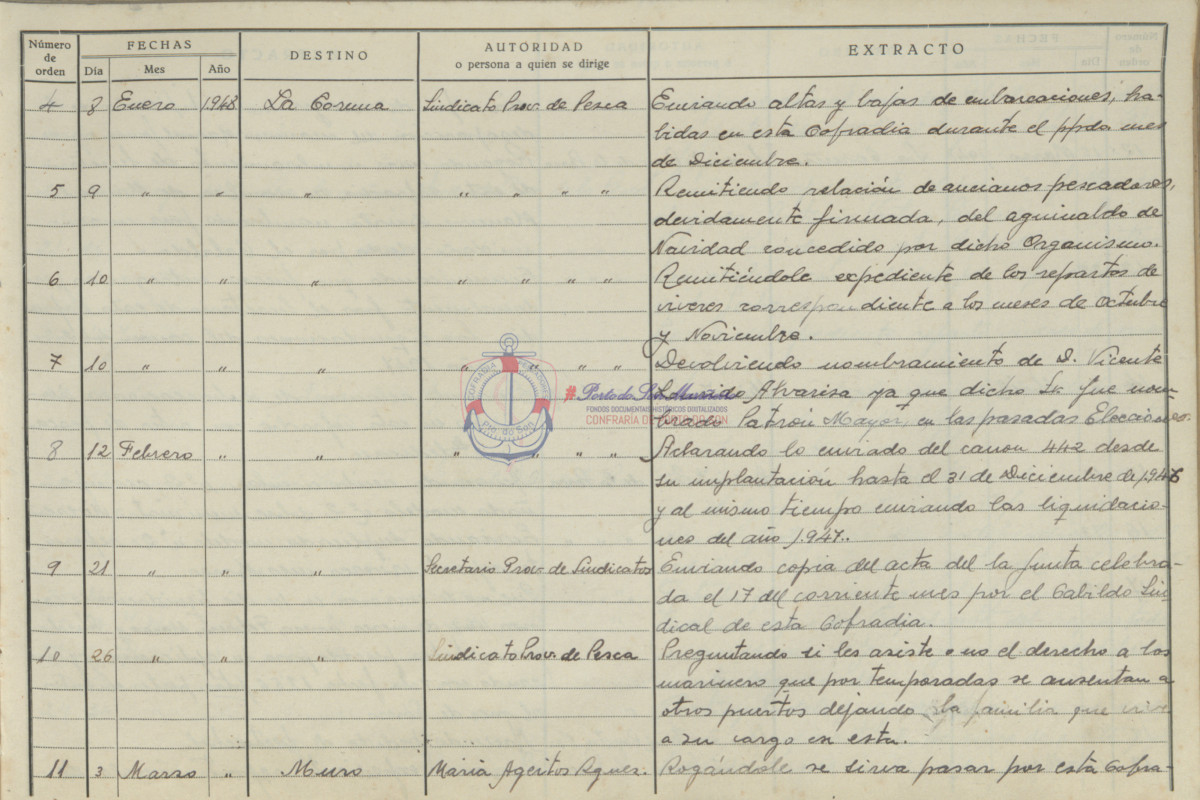 Número de orden FECHAS DESTINO AUTORIDAD o persona a quien se dirige EXTRACTO
Día Mes Año
4 8 Enero 1948 La Coruña Sindicato Prov. de Pesca Enviando altas y bajas de embarcaciones, ha-
bidas en esta Cofradia durante el ppdo mes
de Diciembre.
5 9 " " " " " " " Remitiendo relación de ancianos pescadores,
devidamente firmada, del aguinaldo de
Navidad concedido por dicho Organismo.
6 10 " " " " " " " Remitiéndole expediente de los repartos de
viveres correspondiente a los meses de Octubre
y Noviembre.
7 10 " " " " " " " Devolviendo nombramiento de D. Vicente
ya que dicho Sr. fue nom-
brado Patron Mayor, en las pasadas Elecciones.
8 12 Febrero " " " " " " Aclarando lo enviado del canon 442 desde
su implantación hasta el 31 de Diciembre de 1946
y al mismo tiempo enviando las liquidacio-
nes del año 1.947.
9 21 " " " Secretario Prov. de Sindicatos Enviando copia del acta del la Junta celebra-
da el 17 del corriente mes por el Cabildo Sin-
dical de esta Cofradia.
10 26 " " " Sindicato Prov. de Pesca Preguntando si les asiste o no el derecho a los
marinero que por temporadas se ausentan a
otros puertos dejando la familia que vive
a su cargo en esta.
11 3 Marzo " Muro Maria Ageitos Rogándole se sirva pasar por esta Cofra-
COFRADIA Pto. do Son
#Porto do Son
FONDOS DOCUMENTAIS HISTÓRICOS DIGITALIZADOS
CONFRARIA DE PORTO DO SON